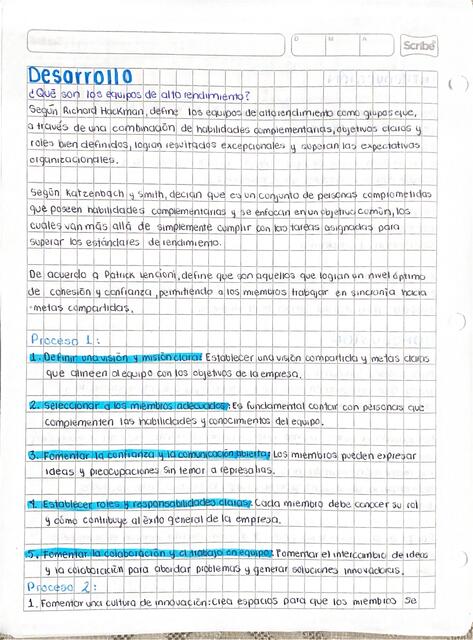 D M A
Scribe
Desarrollo
¿Qué son los equipos de alto rendimiento?
Según Richard Hackman, define los equipos de alto rendimiento como grupos que,
a través de una combinación de habilidades complementarias, objetivos claros y
roles bien definidos, logran resultados excepcionales y superan las expectativas
organizacionales.
Según Katzenbach y Smith, decían que es un conjunto de personas comprometidas
que poseen habilidades complementarias y se enfocan en un objetivo común, los
cuales van más allá de simplemente cumplir con las tareas asignadas para
superar los estándares de rendimiento.
De acuerdo a Patrick Lencioni, define que son aquellos que logran un nivel óptimo
de cohesión y confianza, permitiendo a los miembros trabajar en sincronía hacia
metas compartidas.
Proceso 1:
1. Definir una visión y misión clara: Establecer una visión compartida y metas claras
que alineen al equipo con los objetivos de la empresa.
2. Seleccionar a los miembros adecuados: Es fundamental contar con personas que
complementen las habilidades y conocimientos del equipo.
3. Fomentar la confianza y la comunicación abierta: Los miembros pueden expresar
ideas y preocupaciones sin temor a represalias.
4. Establecer roles y responsabilidades claras: Cada miembro debe conocer su rol
y cómo contribuye al éxito general de la empresa.
5. Fomentar la colaboración y el trabajo en equipo: Fomentar el intercambio de ideas
y la colaboración para abordar problemas y generar soluciones innovadoras.
Proceso 2:
1. Fomentar una cultura de innovación: crea espacios para que los miembros se